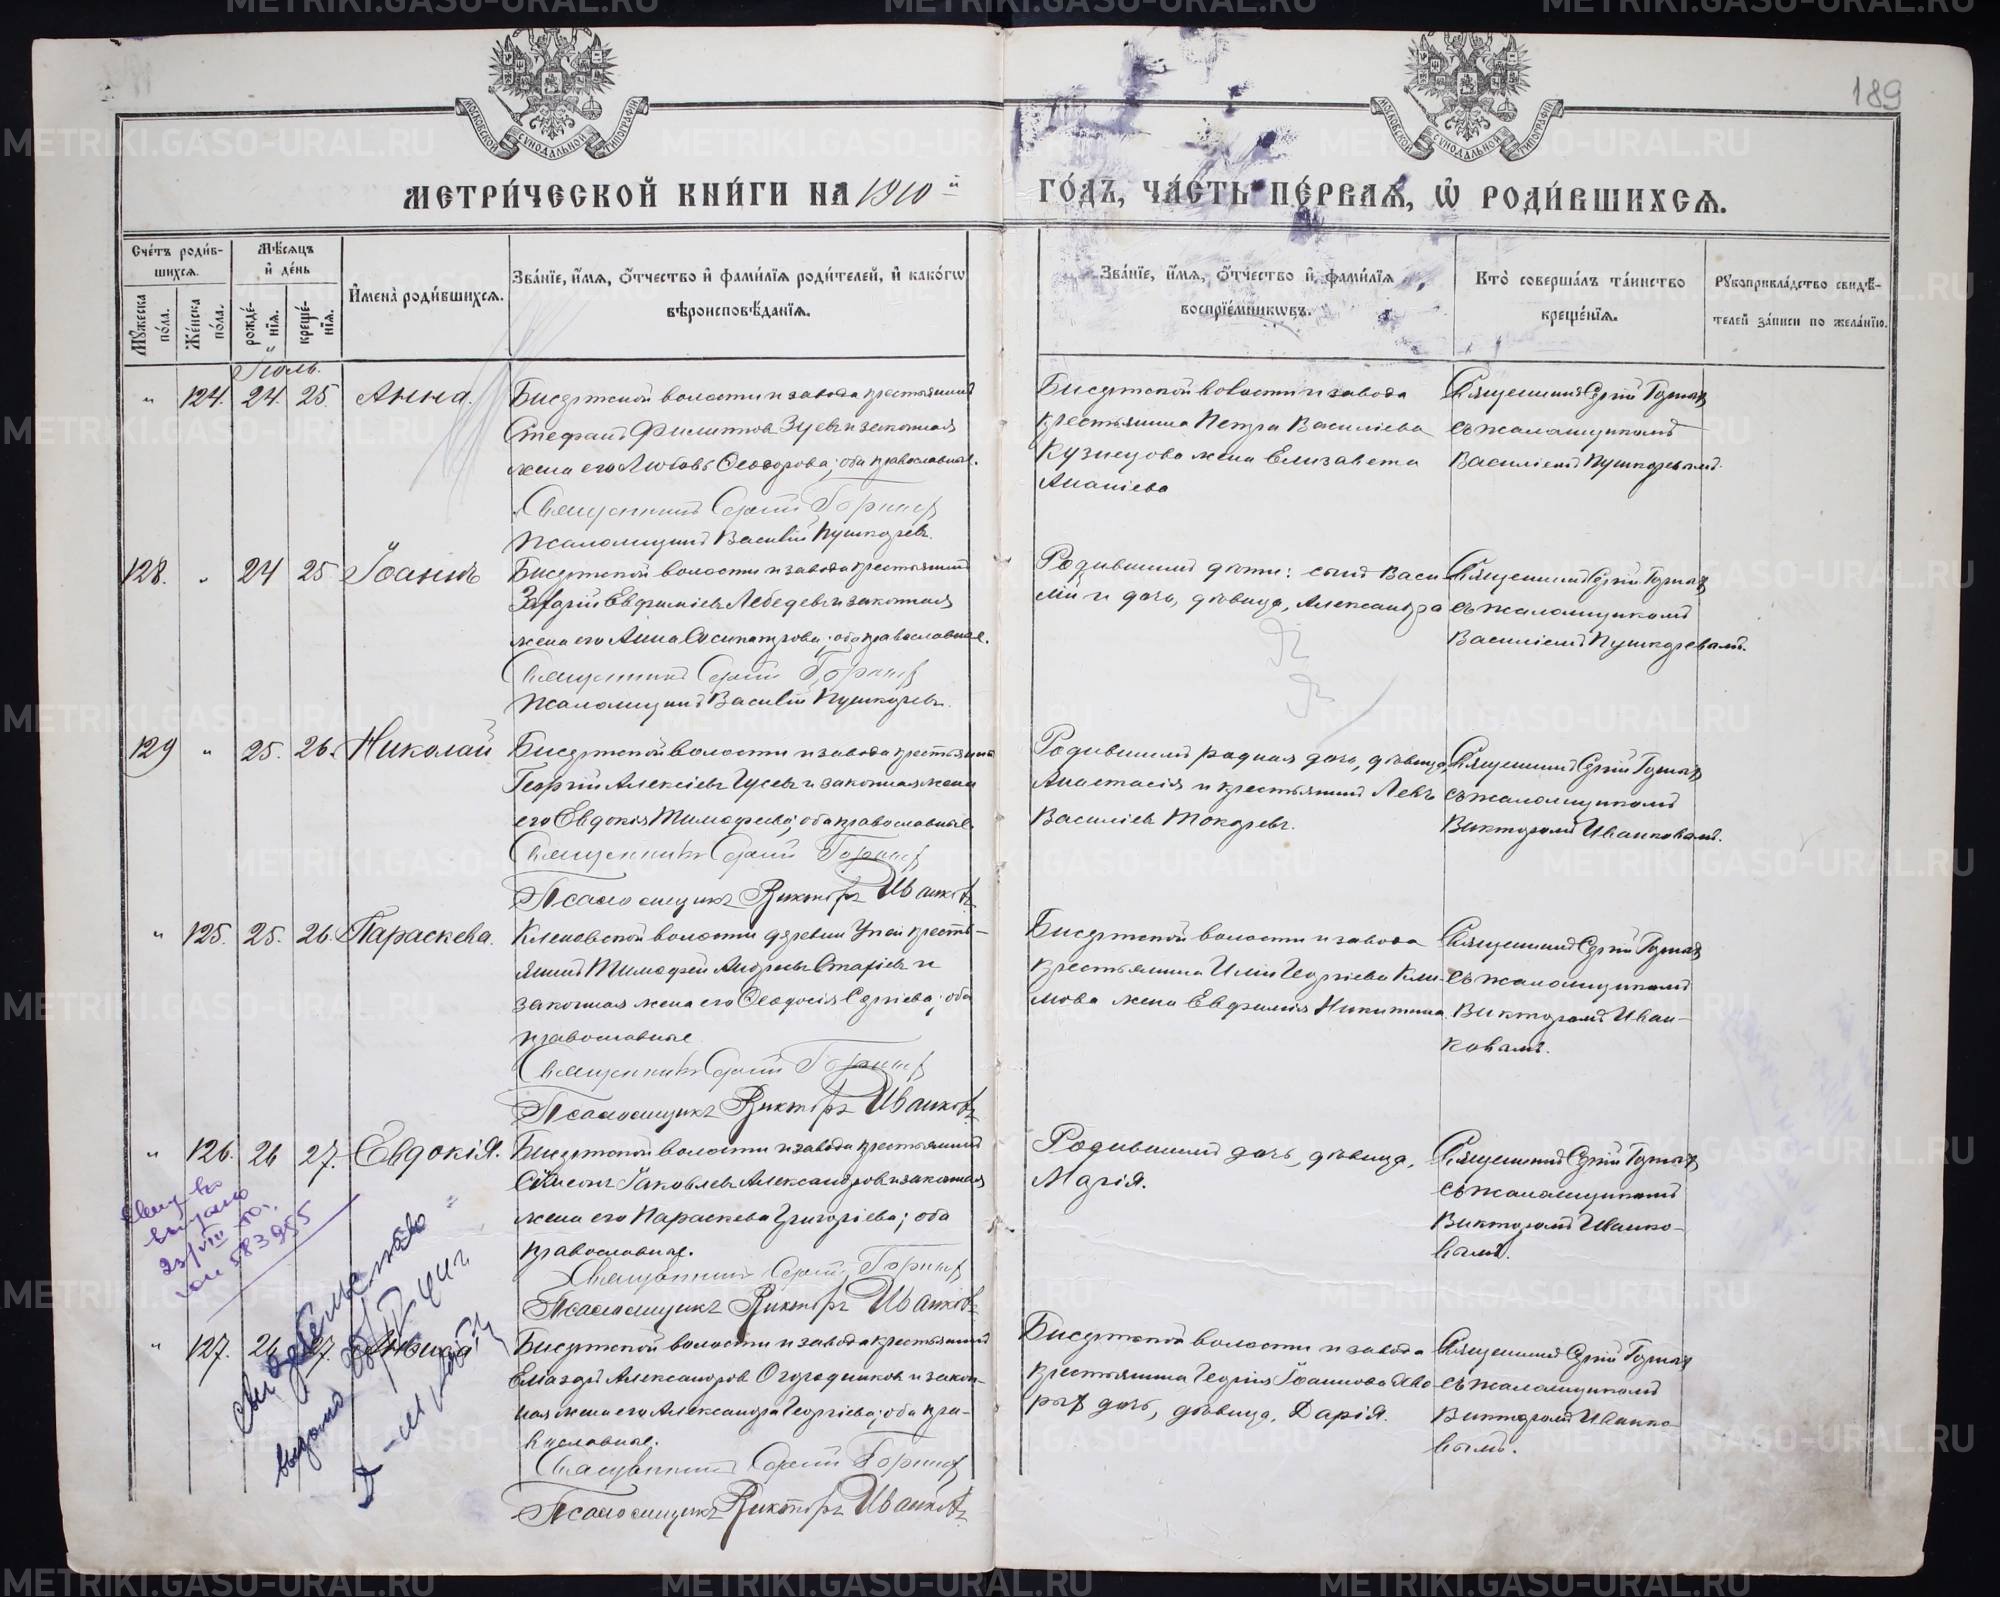 189
МОСКОВСКОЙ СУНОДАЛЬНОЙ ТИПОГРАФІИ
МОСКОВСКОЙ СУНОДАЛЬНОЙ ТИПОГРАФІИ
МЕТРИ́ЧЕСКОЙ КНИ́ГИ НА 1910 й
ГО́ДЪ, ЧА́СТЬ ПЕ́РВАѦ, Ѡ҆ РОДИ́ВШИХСѦ.
Сче́тъ роди́вшихсѧ.
Мꙋ́жеска по́ла.
Же́нска по́ла.
Мѣ́сѧцъ и҆ де́нь
рожде́нїѧ.
креще́нїѧ.
И҆мена̀ роди́вшихсѧ.
Зва́нїе, и҆́мѧ, ѻ҆́тчество и҆ фами́лїѧ роди́телей, и҆ како́гѡ
вѣроисповѣ́данїѧ.
Зва́нїе, и҆́мѧ, ѻ҆́тчество и҆ фами́лїѧ
воспрїе́мникѡвъ.
Кто̀ соверша́лъ та́инство
креще́нїѧ.
Рꙋкоприкла́дство свидѣ́-
телей за́писи по жела́нїю.
Іюль.
" 124. 24. 25. Анна.
Бисертской волости и завода крестьянинъ
Стефанъ Филиппов Зуевъ и законная
жена его Любовь Ѳеодорова; оба православные.
Священникъ Сергій
Псаломщикъ Василій Пушкаревъ.
Бисертской волости и завода
крестьянина Петра Василіева
Кузнецова жена Елизавета
Ананіева
Священникъ Сергій
съ псаломщикомъ
Василіемъ Пушкаревымъ.
128. " 24 25 Іоаннъ
Бисертской волости и завода крестьянинъ
Евфиміевъ Лебедевъ и законная
жена его Анна Сосипатрова; оба православные.
Священникъ Сергій
Псаломщикъ Василій Пушкаревъ.
Родившихъ дѣти: сынъ Васи-
лій и дочь, дѣвица, Александра
Священникъ Сергій
съ псаломщикомъ
Василіемъ Пушкаревымъ.
129 " 25. 26. Николай
Бисертской волости и завода крестьянинъ
Георгій Алексіевъ Гусевъ и законная жена
его Евдокія Тимофеева; оба православные.
Священникъ Сергій
Псаломщикъ Викторъ Иванковъ
Родившихъ родная дочь, дѣвица,
Анастасія и крестьянинъ Левъ
Василіевъ Токаревъ.
Священникъ Сергій
съ псаломщикомъ
Викторомъ Иванковымъ.
" 125. 25. 26. Параскева.
Кленовской волости деревни Упей кресть-
янинъ Тимофей Андреевъ и
законная жена его Ѳеодосія Сергіева; оба
православные
Священникъ Сергій
Псаломщикъ Викторъ Иванковъ
Бисертской волости и завода
крестьянина Иліи Георгіева Кли-
мова жена Евфимія Никитина.
Священникъ Сергій
съ псаломщикомъ
Викторомъ Иван-
ковымъ.
" 126. 26 27. Евдокія.
Бисертской волости и завода крестьянинъ
Симеонъ Іаковлевъ Александровъ и законная
жена его Параскева Григоріева; оба
православные.
Священникъ Сергій
Псаломщикъ Викторъ Иванковъ
Родившихъ дочь, дѣвица,
Марія.
Священникъ Сергій
съ псаломщикомъ
Викторомъ Иванко-
вымъ.
выдано
23/VIII
583955
" 127. 26 27.
свидетельство
выдано
Бисертской волости и завода крестьянинъ
Александровъ Огородниковъ и закон-
ная жена его Александра Георгіева; оба пра-
вославные.
Священникъ Сергій
Псаломщикъ Викторъ Иванковъ
Бисертской волости и завода
крестьянина Георгія Іоаннова
дочь, дѣвица, Дарія.
Священникъ Сергій
съ псаломщикомъ
Викторомъ Иванко-
вымъ.
METRIKI.GASO-URAL.RU